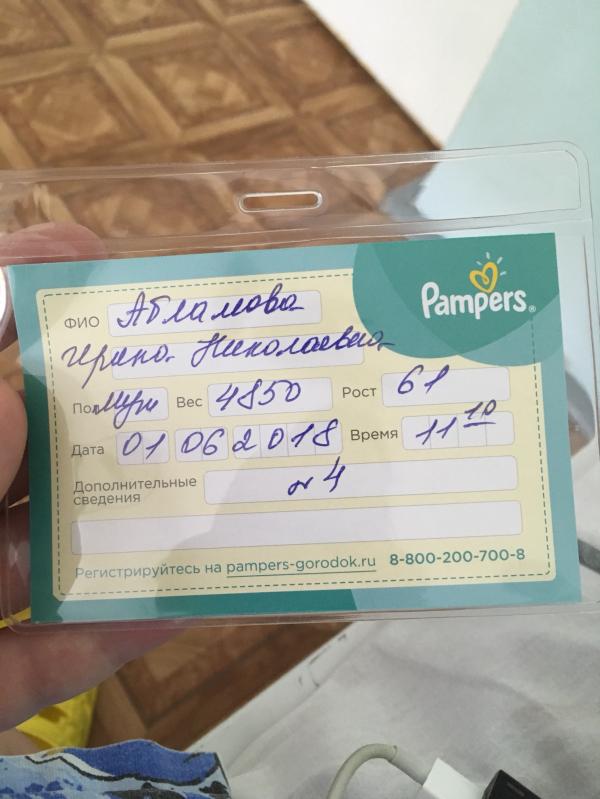 Pampers®
ФИО Абламова
Ирина Николаевна
Пол Муж Вес 4850 Рост 61
Дата 01 06 2018 Время 11 10
Дополнительные
сведения
4
Регистрируйтесь на pampers-gorodok.ru 8-800-200-700-8